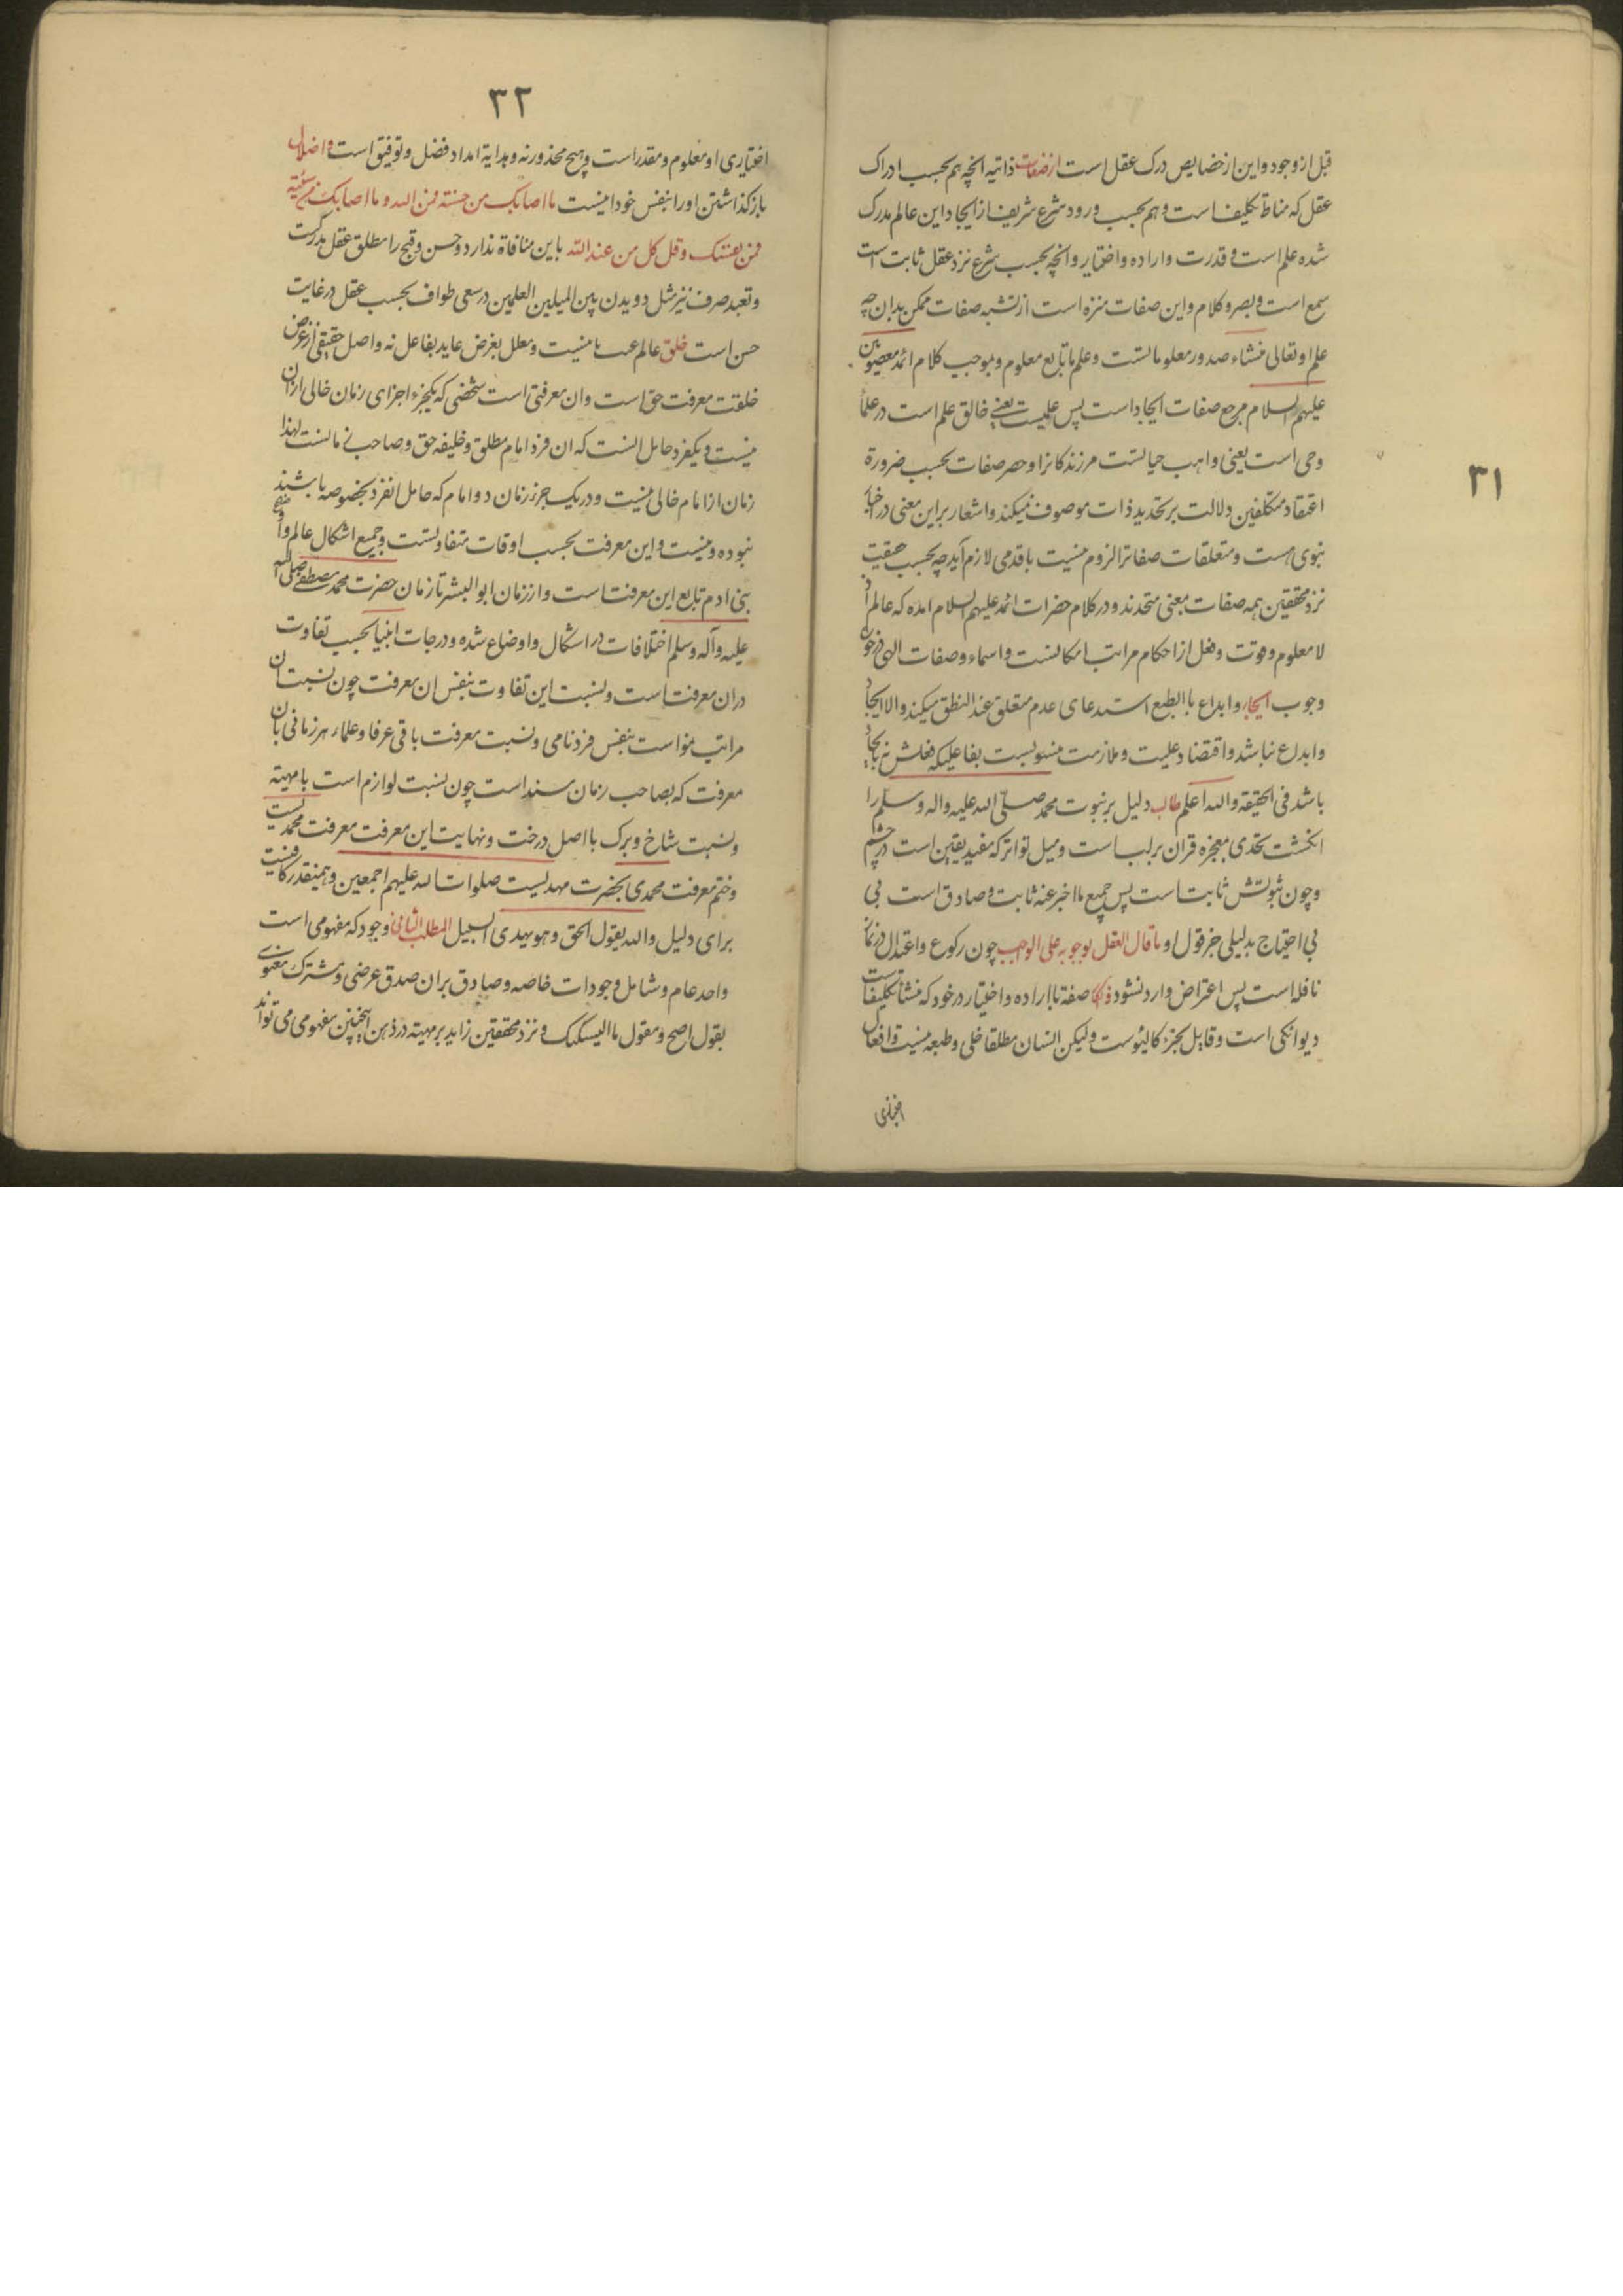 ۳۱
قبل از وجود و این از خصایص درک عقل است از صفات ذاتیه انچه هم بحسب ادراک
عقل که مناط تکلیف است و هم بحسب ورود شرع شریف از ایجاد این عالم مدرک
شده علم است و قدرت و اراده و اختیار و انچه بحسب شرع نزد عقل ثابت است
سمع است و بصر و کلام و این صفات منزه است از تشبه صفات ممکن بدان چه
علم او تعالی منشاء صدور معلوماتست و علم ما تابع معلوم و بموجب کلام ائمه معصومین
علیهم السلام مرجع صفات ایجاد است پس علیمست یعنی خالق علم است در علما
و حی است یعنی واهب حیاتست مر زندکانرا و حصر صفات بحسب ضرورة
اعتقاد متکلفین دلالت بر تحدید ذات موصوف نمیکند و اشعار بر این معنی در اخبار
نبوی هست و متعلقات صفاترا لزوم نیست با قدمی لازم آید چه بحسب حقیقت
نزد محققین همه صفات بمعنی متحدند و در کلام حضرات ائمه علیهم السلام امده که عالم اذ
لا معلوم و قوت و فعل از احکام مراتب امکانست و اسماء و صفات الهی در خور
وجوب ایجاد و ابداع با الطبع استدعای عدم متعلق عند النطق میکند و الا ایجاد
و ابداع نباشد و اقتضاء علیت و ملازمت منسوبست بفاعلیکه فعلش نه بایجاد
باشد فی الحقیقه والله اعلم طالب دلیل بر نبوت محمد صلی الله علیه واله وسلم را
انکشت تحدی معجزه قران بر لب است و میل تواتر که مفید یقین است در چشم
و چون نبوتش ثابت است پس جمیع ما اخبر عنه ثابت و صادق است بی
بی احتیاج بدلیلی جز قول او و ما قال العقل بوجوبه علی الواجب چون رکوع و اعتدال در نماز
نافله است پس اعتراض وارد نشود صفة با اراده و اختیار در خود که منشأ تکلیفات
دیوانکی است و قایل بجزء کالیوست ولیکن انسان مطلقا خلی و طبعه نیست و افعال
۳۲
اختیاری او معلوم و مقدر است و هیچ محذور نه و هدایة امداد فضل و توفیق است و اضلال
باز کذاشتن او را بنفس خود نیست ما اصابک من حسنة فمن الله و ما اصابک من سیئة
فمن نفسک و قل کل من عند الله باین منافاة ندارد و حسن و قبح را مطلق عقل مدرکست
و تعبد صرف نیز مثل دویدن بین المیلین العلمین در سعی طواف بحسب عقل در غایت
حسن است خلق عالم عبث نیست و معلل بغرض عاید بفاعل نه و اصل حقیقی از غرض
خلقت معرفت حق است و ان معرفتی است شخصی که یکجزء اجزای زمان خالی از ان
نیست و یکفرد حامل انست که ان فرد امام مطلق و خلیفه حق و صاحب زمانست لهذا
زمان از امام خالی نیست و در یک جزء زمان دو امام که حامل انفرد بخصوصه باشند
نبوده و نیست و این معرفت بحسب اوقات متفاوتست و جمیع اشکال عالم و اوضاع
بنی ادم تابع این معرفت است و از زمان ابوالبشر تا زمان حضرت محمد مصطفی صلی الله
علیه وآله وسلم اختلافات در اشکال و اوضاع شده و درجات انبیا بحسب تفاوت
دران معرفت است و نسبت این تفاوت بنفس ان معرفت چون نسبت ان
مراتب نمو است بنفس فرد نامی و نسبت معرفت باقی عرفا و علماء هر زمانی بان
معرفت که بصاحب زمان مسند است چون نسبت لوازم است با مهیته
و نسبت شاخ و برک با اصل درخت و نهایت این معرفت معرفت محمدیست
و ختم معرفت محمدی بحضرت مهدیست صلوات الله علیهم اجمعین و همینقدر کافیست
برای دلیل والله یقول الحق و هو یهدی السبیل المطلب الثانی وجود که مفهومی است
واحد عام و شامل وجودات خاصه و صادق بران صدق عرضی و مشترک معنوی
بقول اصح و مقول ما الیسکیک و نزد محققین زاید بر مهیته در ذهن اینچنین مفهومی می تواند